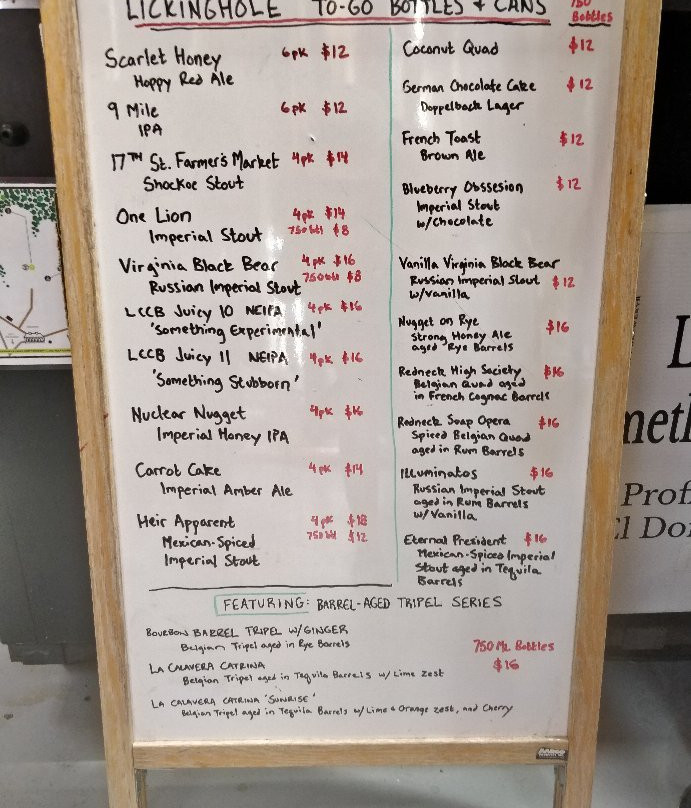 LICKINGHOLE TO-GO BOTTLES & CANS
750
Bottles
Scarlet Honey 6pk $12
Hoppy Red Ale
9 Mile 6pk $12
IPA
17TH St. Farmer's Market 4pk $14
Shockoe Stout
One Lion 4pk $14
Imperial Stout 750btl $8
Virginia Black Bear 4pk $16
Russian Imperial Stout 750btl $8
LCCB Juicy 10 NEIPA 4pk $16
'Something Experimental'
LCCB Juicy 11 NEIPA 4pk $16
'Something Stubborn'
Nuclear Nugget 4pk $16
Imperial Honey IPA
Carrot Cake 4pk $14
Imperial Amber Ale
Heir Apparent 4pk $18
Mexican-Spiced 750btl $12
Imperial Stout
Coconut Quad $12
German Chocolate Cake $12
Doppelbock Lager
French Toast $12
Brown Ale
Blueberry Obssesion $12
Imperial Stout
w/Chocolate
Vanilla Virginia Black Bear
Russian Imperial Stout $12
w/Vanilla
Nugget on Rye $16
Strong Honey Ale
aged Rye Barrels
Redneck High Society $16
Belgian Quad aged
in French Cognac Barrels
Redneck Soap Opera $16
Spiced Belgian Quad
aged in Rum Barrels
Illuminatos $16
Russian Imperial Stout
aged in Rum Barrels
w/Vanilla
Eternal President $16
Mexican-Spiced Imperial
Stout aged in Tequila
Barrels
FEATURING: BARREL-AGED TRIPEL SERIES
BOURBON BARREL TRIPEL W/GINGER
Belgian Tripel aged in Rye Barrels
750 ML Bottles
$16
LA CALAVERA CATRINA
Belgian Tripel aged in Tequila Barrels w/ Lime Zest
LA CALAVERA CATRINA 'SUNRISE'
Belgian Tripel aged in Tequila Barrels w/ Lime & Orange Zest, and Cherry
L
meth
Prof
El Dor